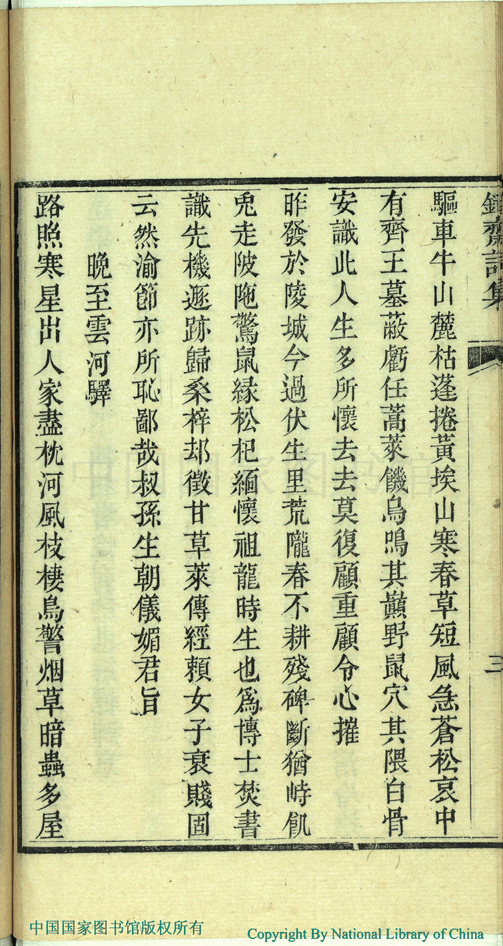 齋詩集
三
驅車牛山麓枯蓬捲黃埃山寒春草短風急蒼松哀中
有齊王墓蔽虧任蒿萊饑烏鳴其巔野鼠穴其隈白骨
安識此人生多所懷去去莫復顧重顧令心摧
昨發於陵城今過伏生里荒隴春不耕殘碑斷猶峙飢
兎走陂陁驚鼠緣松杞緬懷祖龍時生也爲博士焚書
識先機遯跡歸桑梓却徵甘草萊傳經賴女子衰賤固
云然渝節亦所恥鄙哉叔孫生朝儀媚君旨
晚至雲河驛
路照寒星出人家盡枕河風枝棲鳥警烟草暗蟲多屋
中国国家图书馆
中国国家图书馆版权所有
Copyright By National Library of China